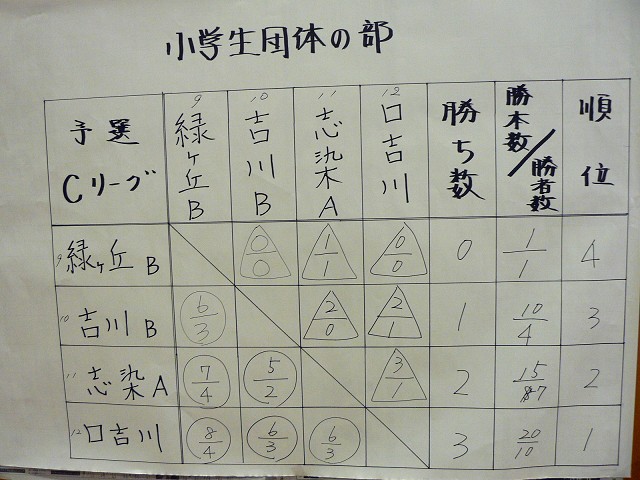 小学生団体の部
予選 Cリーグ 9 緑ヶ丘B 10 吉川B 11 志染A 12 口吉川 勝ち数 勝本数/勝者数 順位
9 緑ヶ丘 B 0/0 1/1 0/0 0 1/1 4
10 吉川 B 6/3 2/0 2/1 1 10/4 3
11 志染 A 7/4 5/2 3/1 2 15/7 2
12 口吉川 8/4 6/3 6/3 3 20/10 1